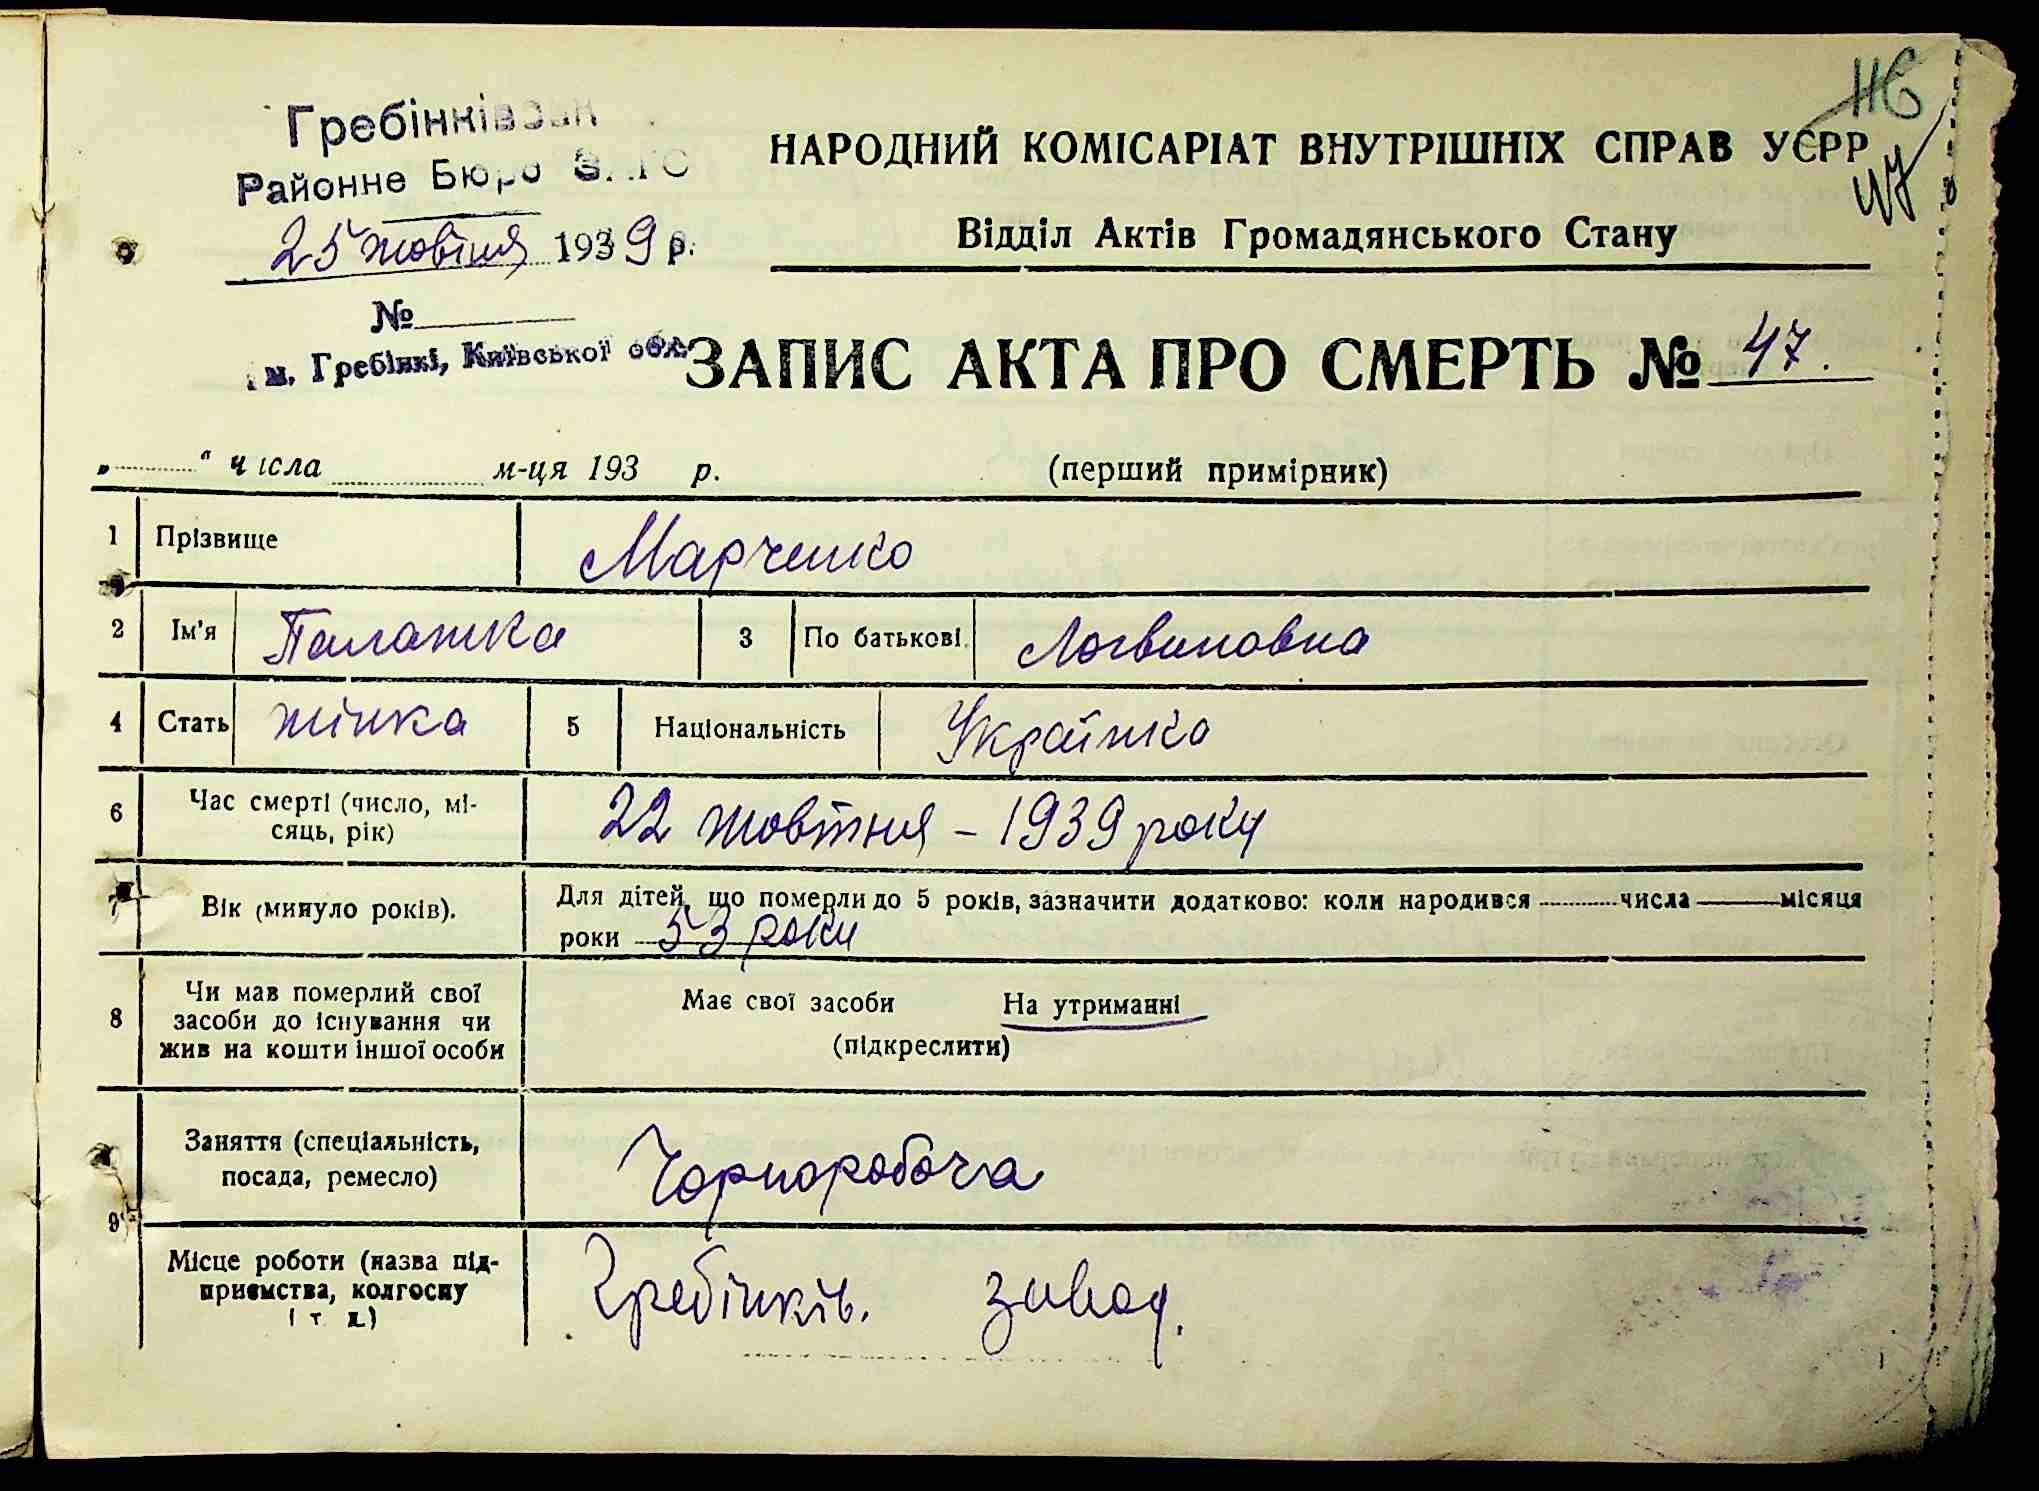 116
47
Гребінківсан
Районне Бюро ЗАГС
25 жовтня 1939 р.
№
м. Гребінкі, Київської обл.
НАРОДНИЙ КОМІСАРІАТ ВНУТРІШНІХ СПРАВ УСРР
Відділ Актів Громадянського Стану
ЗАПИС АКТА ПРО СМЕРТЬ № 47.
„ “ числа м-ця 193 р. (перший примірник)
1 Прізвище Марченко
2 Ім'я Палажка 3 По батькові Логвиновна
4 Стать жінка 5 Національність Українка
6 Час смерті (число, мі-
сяць, рік) 22 жовтня – 1939 року
7 Вік (минуло років).
Для дітей, що померли до 5 років, зазначити додатково: коли народився числа місяця
роки 53 роки
8 Чи мав померлий свої
засоби до існування чи
жив на кошти іншої особи
Має свої засоби На утриманні
(підкреслити)
9
Заняття (спеціальність,
посада, ремесло) Чорноробоча
Місце роботи (назва під-
приємства, колгоспу
і т. д.) Гребінків. завод.